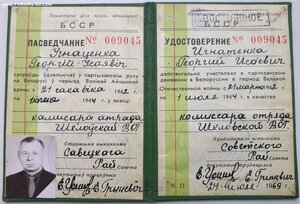 Пралетарыі ўсіх краін, еднайцеся!
БССР
ПАСВЕДЧАННЕ № 009045
Ігнаценка
Георгій Ісаевіч
сапраўды ўдзельнічаў у партызанскім руху
на Беларусі ў перыяд Вялікай Айчыннай
вайны з 21 сакавіка 1942 г. па
1944 г. у якасці
камісара атрада
Шклоўскай ВОГ
Старшыня выканкома
Савецкага
Рай Савета
БССР
УДОСТОВЕРЕНИЕ № 009045
Игнатенко
Георгий Исаевич
действительно участвовал в партизанском
движении в Белоруссии в период Великой
Отечественной войны с 21 марта
по 1 июля 1944 г. в качестве
комиссара отряда
Шкловской ВОГ
Председатель исполкома
Советского
Рай Совета
М П
24 июля 1969 г.